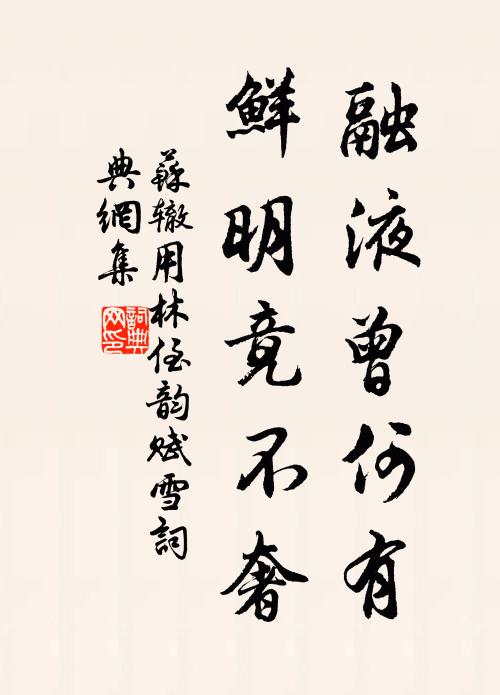 融液曾何有
鮮明竟不奢
蘇辙用林侄韵赋雪詞
典網集
詞典网印